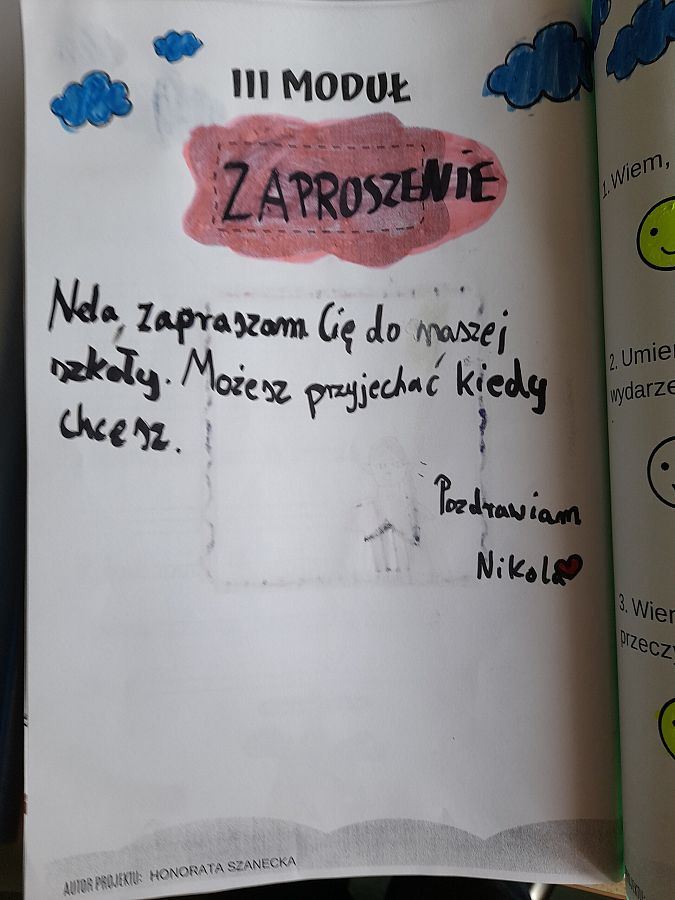 III MODUŁ
ZAPROSZENIE
Nela, zapraszam Cię do naszej
szkoły. Możesz przyjechać kiedy
chcesz.
Pozdrawiam
Nikola
AUTOR PROJEKTU: HONORATA SZANECKA
1. Wiem,
2. Umiem
wydarze
3. Wiem
przeczy